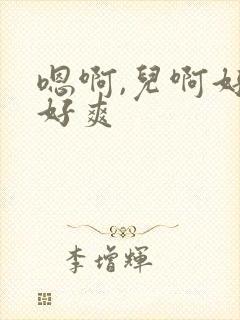 嗯啊,兒啊好
好爽
李增輝